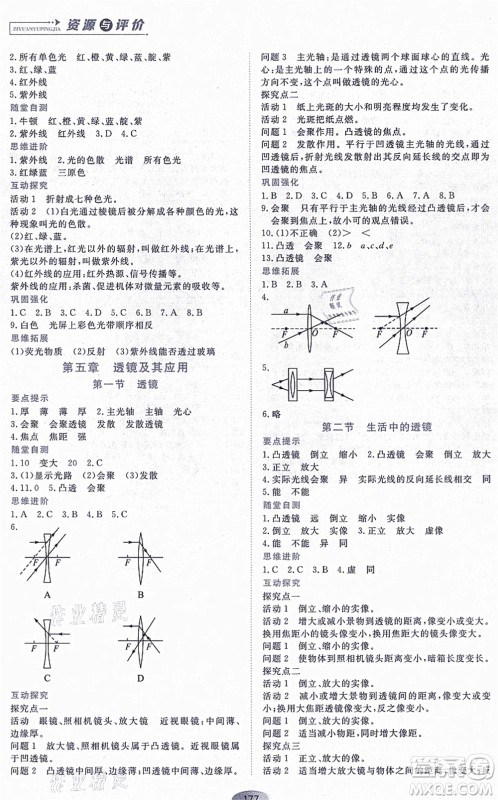 资源与评价
ZIYUANYUPINGJIA
2.所有单色光 红、橙、黄、绿、蓝、靛、紫
3.红、绿、蓝
4.红外线
5.紫外线
随堂自测
1.牛顿 红、橙、黄、绿、蓝、靛、紫
2.紫外线 红外线 3.B 4.D 5.C
思维进阶
1.紫外线 2.光的色散 光的传播
3.红绿蓝 4.D
互动探究
活动 1 折射成七种色光。
活动 2 (1)白光通过棱镜后被分解成各种颜色的光,这种现象叫光的色散。
(2)红、绿、蓝。
(3)光谱上红光以外的辐射,叫做红外线;在光谱的紫光以外的辐射,叫做紫外线。
红外线的应用:红外线夜视仪、电视遥控器等。
紫外线的应用:杀菌、促进体内对微量元素的吸收等。
巩固强化
1.C 2.C 3.D 4.C 5.B 6.A 7.D 8.B
9.白色 光屏上彩色光带顺序相反
思维拓展
(1)荧光物质 (2)反射 (3)紫外线能否透过玻璃
第五章 透镜及其应用
第一节 透镜
要点提示
1.厚 薄 薄 厚 2.主光轴 主光轴 光心
3.会聚 会聚透镜 发散 发散透镜
4.焦点 焦距 强
随堂自测
1.10 变大 20 2.C
3.(1)显示光路 (2)会聚 (3)发散
4.11.0 5.凸透 会聚
思维进阶
1.D 2.C 3.B 4.B 5.C
6.
F F F F
A D
F F F F
C B
互动探究
探究点一
活动 眼镜、照相机、放大镜 近视眼镜:中间薄、边缘厚。
问题 1 放大镜、照相机镜头:中间厚、边缘薄。近视眼镜:中间薄、边缘厚。
问题 2 中间厚、边缘薄;凹透镜:中间薄、边缘厚。
问题 3 主光轴:通过透镜两个球面球心的直线。光心:是主光轴上的一个特殊的点,通过它的光传播方向不变。
探究点二
活动 1 纸上光斑的大小和明亮程度均发生改变。
活动 2 光斑把纸点燃。
问题 1 会聚作用。凸透镜的焦点。
问题 2 发散作用。平行于凹透镜主光轴的光线,通过凹透镜后,发散光线的反向延长线的交点即为凹透镜的焦点。
巩固强化
1.B 2.B 3.C 4.A 5.A 6.D 7.B 8.A
9.会聚 只有平行主光轴的光线经过凸透镜后,才会会聚于焦点。
10.(1)不正确 (2)＜ ＞
11.凸透 会聚 12.b a、c、d、e
13.凸透镜 会聚
思维拓展
1.D 2.B 3.B
4.
F O F F O F
5.
6.略
第二节 生活中的透镜
要点提示
1.凸透镜 会聚 倒立 缩小 实
2.凸透镜 倒立 放大 实
3.正立 放大
4.实际光线会聚 异 实际光线的反向延长线相交 同
5.能 不能
随堂自测
1.凸透镜 远 倒立 缩小 实像
2.倒立 放大 实像 变大
3.正立 放大 虚
4.能 不能 异 同
思维进阶
1.A 2.B 3.B 4.虚 同
互动探究
探究点一
活动 1 倒立、缩小的实像。
活动 2 增大或减小景物到透镜的距离,像变小或变大。换用焦距小的小透镜,像变小,换焦距大的像变大。
问题 1 倒立、缩小的实像。
问题 2 使物体到照相机镜头的距离变小,暗箱长度变长。
探究点二
活动 1 倒立、放大的实像。
活动 2 减小或增大小景物到透镜的距离,像变大或变小。换用焦距小的小透镜,像变小,换焦距大的像变大。
问题 倒立、放大的实像。
探究点三
活动 1 正立、放大的虚像。
活动 2 适当增大放大镜与物体间的距离,像变大
177